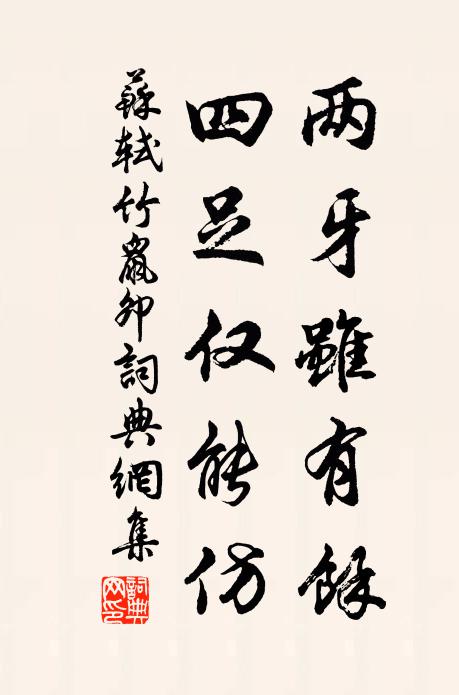 两牙雖有餘
四足仅能仿
蘇軾竹鼠卯詞典網集
詞典網印